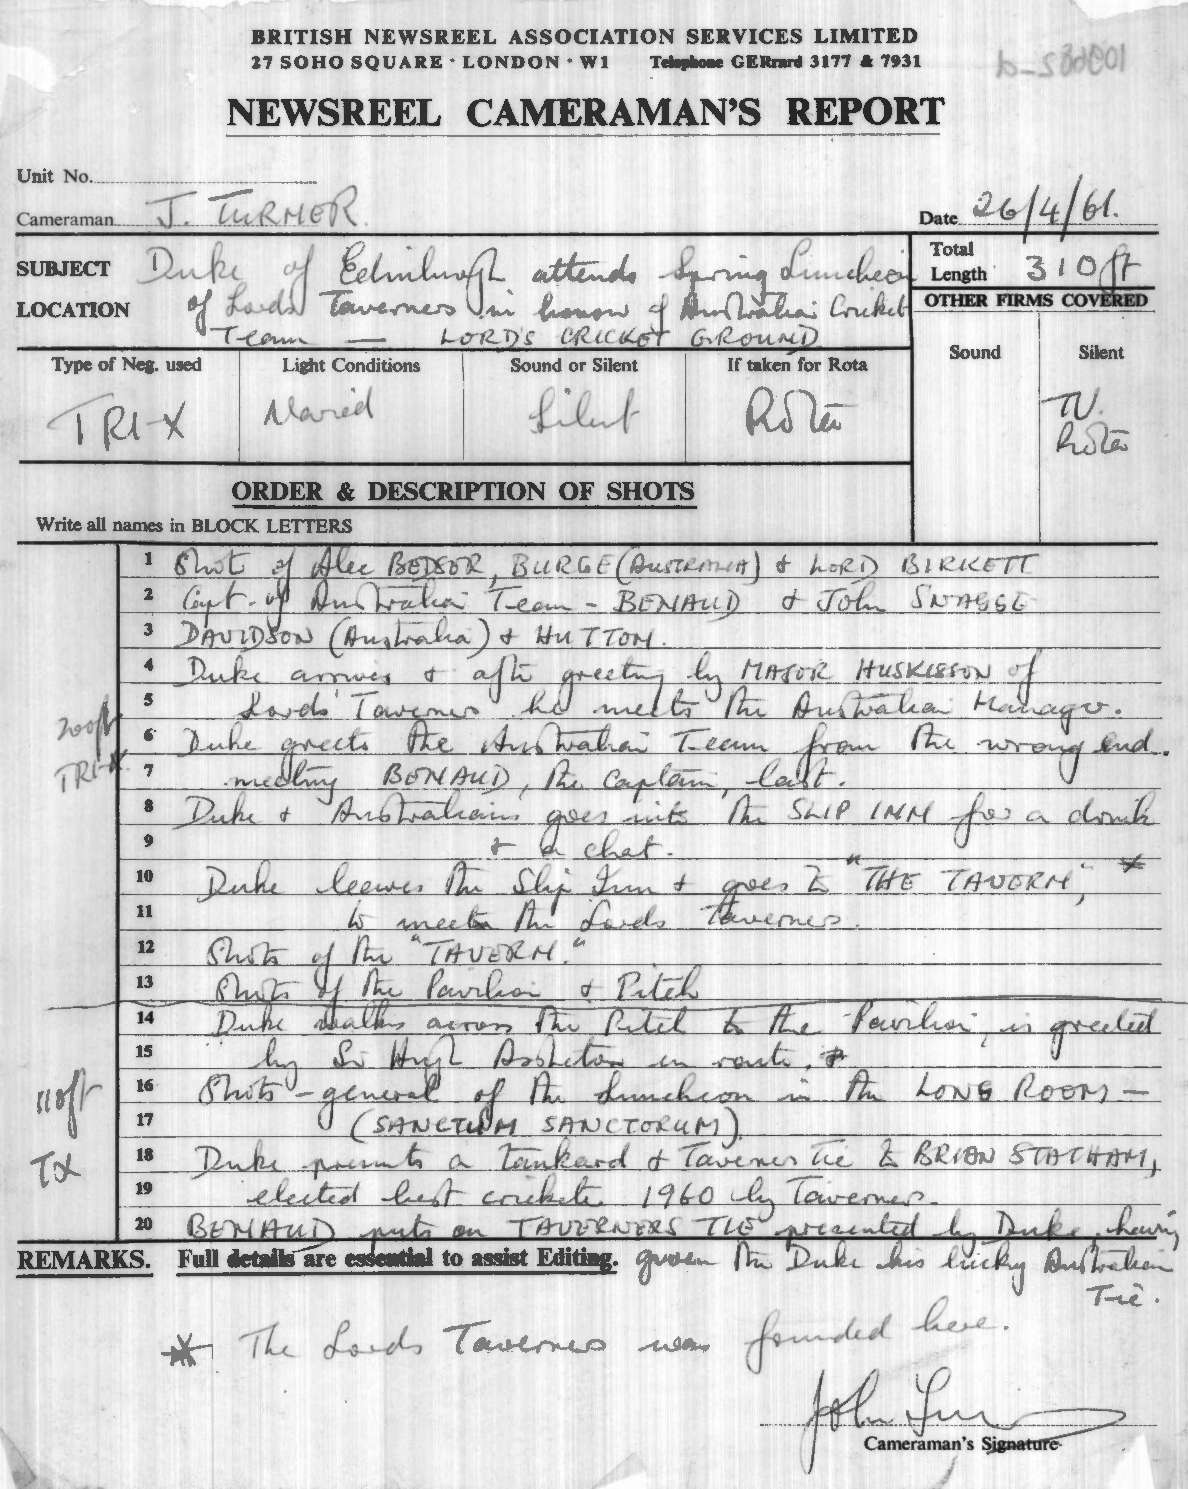 BRITISH NEWSREEL ASSOCIATION SERVICES LIMITED
27 SOHO SQUARE · LONDON · W1 Telephone GERrard 3177 & 7931
NEWSREEL CAMERAMAN'S REPORT
Unit No.
Cameraman J. TURNER.
Date 26/4/61.
SUBJECT Duke of Edinburgh attends Spring Luncheon
LOCATION of Lords Taverners in honour of Australian Cricket
Team — LORD'S CRICKET GROUND
Total Length 310 ft
OTHER FIRMS COVERED
Sound Silent
TV.
Rota
Type of Neg. used Light Conditions Sound or Silent If taken for Rota
TRI-X Varied Silent Rota
ORDER & DESCRIPTION OF SHOTS
Write all names in BLOCK LETTERS
1 Shot of Alec BEDSER, BURGE (AUSTRALIA) & LORD BIRKETT
2 Capt. of Australian Team - BENAUD & John SNAGGE
3 DAVIDSON (Australia) & HUTTON.
4 Duke arrives & after greeting by MAJOR HUSKISSON of
5 Lords' Taverners he meets the Australian Manager.
200ft
TRI-X
6 Duke greets the Australian Team from the wrong end.
7 meeting BENAUD, the captain, last.
8 Duke & Australians goes into the SLIP INN for a drink
9 & a chat.
10 Duke leaves the Slip Inn & goes to "THE TAVERN," *
11 to meet the Lords Taverners.
12 Shots of the "TAVERN."
13 Shots of the Pavilion & Pitch
14 Duke walks across the Pitch to the Pavilion, is greeted
15 by Sir Hugh Assheton en route.
110ft
TX
16 Shots - general of the Luncheon in the LONG ROOM —
17 (SANCTUM SANCTORUM)
18 Duke presents a tankard & Taverners Tie to BRIAN STATHAM,
19 elected best cricketer 1960 by Taverners.
20 BENAUD puts on TAVERNERS TIE presented by Duke, having
REMARKS. Full details are essential to assist Editing. given the Duke his lucky Australian
Tie.
* The Lords Taverners was founded here.
John Turner
Cameraman's Signature